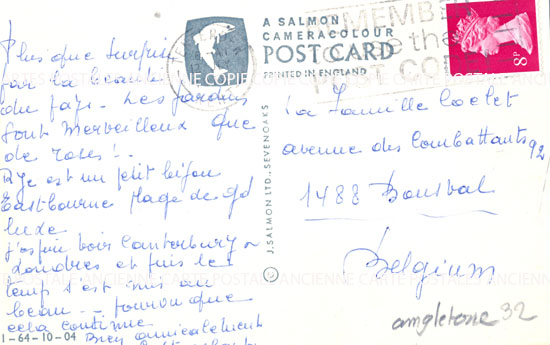 A SALMON
CAMERACOLOUR
POST CARD
PRINTED IN ENGLAND
REMEMBER
use the
POST CO
8P
Plus que surpris
par la beauté
du pays - Les jardins
sont merveilleux que
de roses!..
Rye est un petit bijou
Eastbourne plage de gd
luxe
J'espère voir Canterbury
Londres et puis le
temps s'est mis au
beau - - pourvu que
cela continue
Bien amicalement
1-64-10-04
J. SALMON LTD., SEVENOAKS ©
La Famille Coelet
avenue des Combattants 92
1488 Bousval
Belgium
angleterre 32
CARTE POSTALE ANCIENNE COPIE CARTE POSTALE ANCIENNE
CARTE POSTALE ANCIENNE CARTE POSTALE ANCIENNE